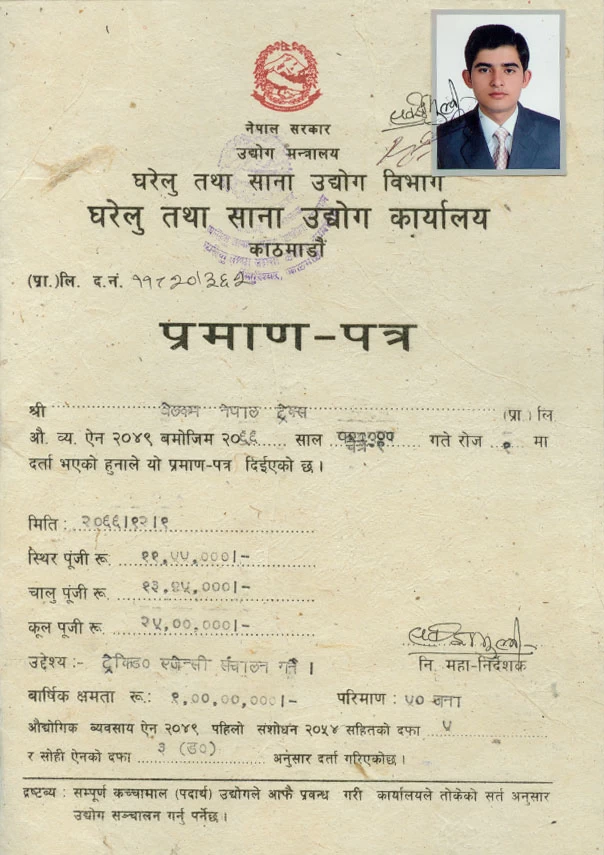 नेपाल सरकार
उद्योग मन्त्रालय
घरेलु तथा साना उद्योग विभाग
घरेलु तथा साना उद्योग कार्यालय
काठमाडौं
(प्रा.)लि. द.नं. ११९२०/३६२
प्रमाण-पत्र
श्री वेलकम नेपाल ट्रेक्स (प्रा.) लि.
औ. व्य. ऐन २०४९ बमोजिम २०६६ साल गते रोज १ मा
दर्ता भएको हुनाले यो प्रमाण-पत्र दिईएको छ ।
मिति : २०६६।१२।९
स्थिर पूंजी रू. ११,५५,०००।-
चालु पूंजी रू. १३,४५,०००।-
कूल पूजी रू. २५,००,०००।-
उद्देश्य :- ट्रेकिङ एजेन्सी संचालन गर्ने ।
नि. महा-निर्देशक
बार्षिक क्षमता रू.: १,००,००,०००।- परिमाण : ५० जना
औद्योगिक ब्यवसाय ऐन २०४९ पहिलो संशोधन २०५४ सहितको दफा ५
र सोही ऐनको दफा ३ (ङ०) अनुसार दर्ता गरिएकोछ ।
द्रष्टब्य : सम्पूर्ण कच्चामाल (पदार्थ) उद्योगले आफै प्रवन्ध गरी कार्यालयले तोकेको सर्त अनुसार
उद्योग सञ्चालन गर्नु पर्नेछ ।